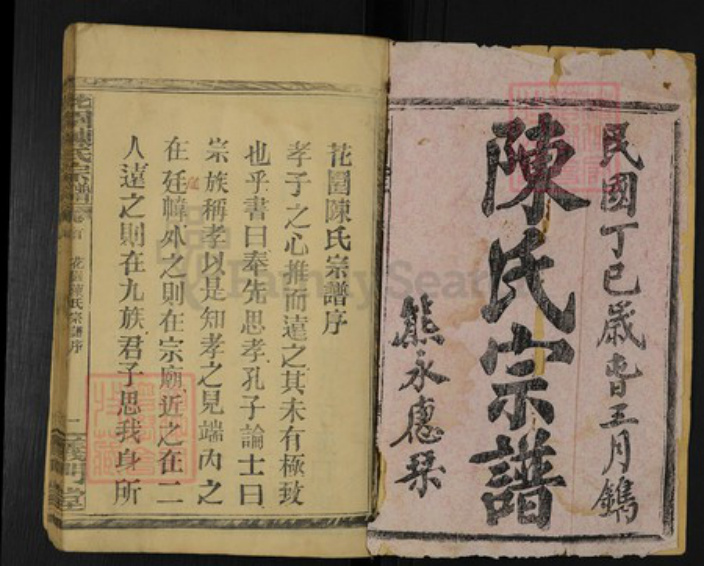 民國丁巳歲春五月鐫
陳氏宗譜
熊永惪琹
花園陳氏宗譜序
孝子之心推而遠之其未有極致
也乎書曰奉先思孝孔子論士曰
宗族稱孝以是知孝之見端內之
在廷幃外之則在宗廟近之在二
人遠之則在九族君子思我身所
花園陳氏宗譜
花園陳氏宗譜序
一
義門堂
FamilySearch